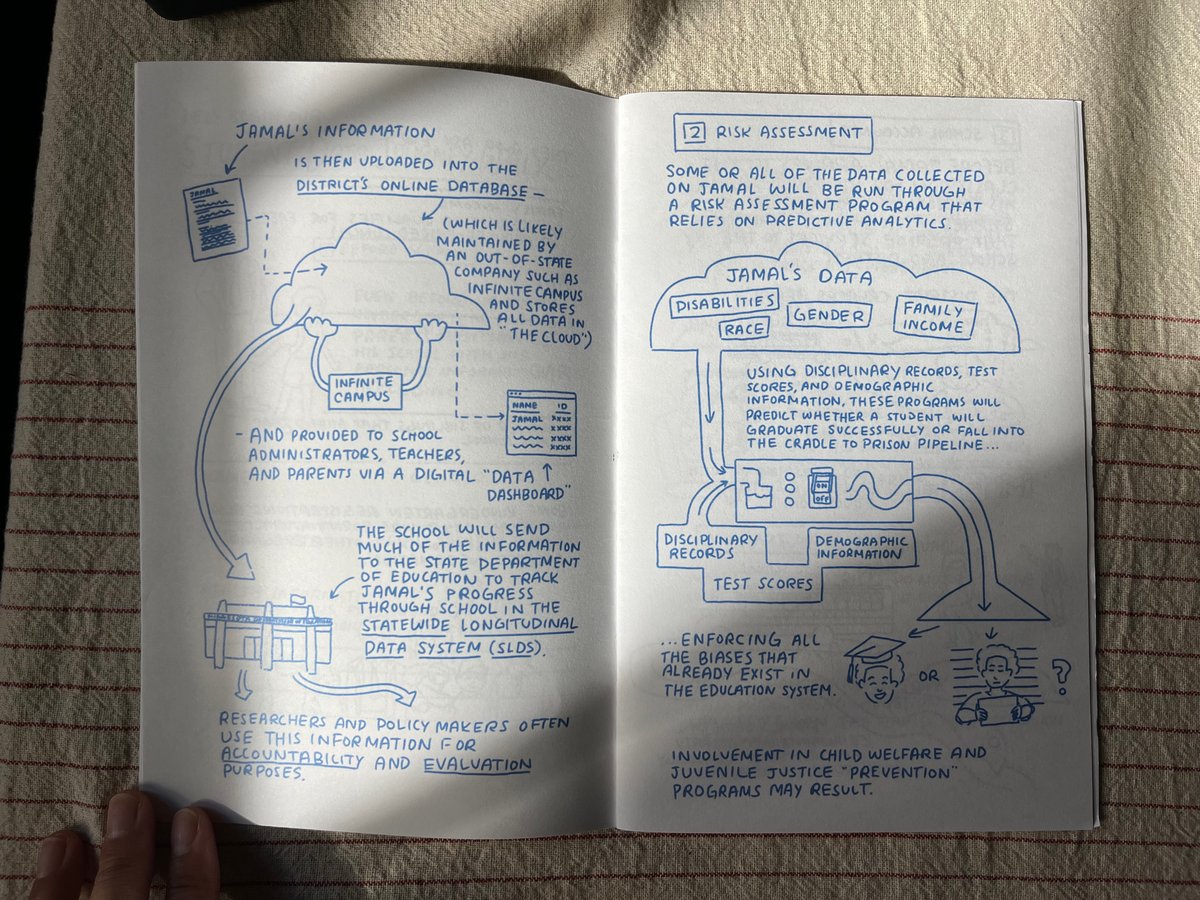 JAMAL'S INFORMATION
IS THEN UPLOADED INTO THE
DISTRICT'S ONLINE DATABASE —
JAMAL
(WHICH IS LIKELY
MAINTAINED BY
AN OUT-OF-STATE
COMPANY SUCH AS
INFINITE CAMPUS
AND STORES
ALL DATA IN
"THE CLOUD")
INFINITE
CAMPUS
NAME ID
JAMAL XXXX
XXXX
XXXX
XXXX
- AND PROVIDED TO SCHOOL
ADMINISTRATORS, TEACHERS,
AND PARENTS VIA A DIGITAL "DATA
DASHBOARD"
THE SCHOOL WILL SEND
MUCH OF THE INFORMATION
TO THE STATE DEPARTMENT
OF EDUCATION TO TRACK
JAMAL'S PROGRESS
THROUGH SCHOOL IN THE
STATEWIDE LONGITUDINAL
DATA SYSTEM (SLDS).
RESEARCHERS AND POLICY MAKERS OFTEN
USE THIS INFORMATION FOR
ACCOUNTABILITY AND EVALUATION
PURPOSES.
2 RISK ASSESSMENT
SOME OR ALL OF THE DATA COLLECTED
ON JAMAL WILL BE RUN THROUGH
A RISK ASSESSMENT PROGRAM THAT
RELIES ON PREDICTIVE ANALYTICS.
JAMAL'S DATA
DISABILITIES
RACE
GENDER
FAMILY
INCOME
USING DISCIPLINARY RECORDS, TEST
SCORES, AND DEMOGRAPHIC
INFORMATION, THESE PROGRAMS WILL
PREDICT WHETHER A STUDENT WILL
GRADUATE SUCCESSFULLY OR FALL INTO
THE CRADLE TO PRISON PIPELINE...
ON
OFF
DISCIPLINARY
RECORDS
DEMOGRAPHIC
INFORMATION
TEST SCORES
...ENFORCING ALL
THE BIASES THAT
ALREADY EXIST IN
THE EDUCATION SYSTEM.
OR
?
INVOLVEMENT IN CHILD WELFARE AND
JUVENILE JUSTICE "PREVENTION"
PROGRAMS MAY RESULT.